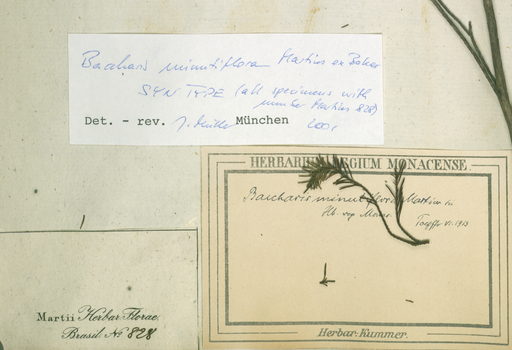 Baccharis minutiflora Martius ex Baker
SYNTYPE (all specimens with
number Martius 828)
Det. - rev. J. Müller München 2001
HERBARIUM REGIUM MONACENSE.
Baccharis minutiflora Martius in
Hb. reg. Monac.
Herbar. Kummer.
Martii Herbar. Florae
Brasil. No 828